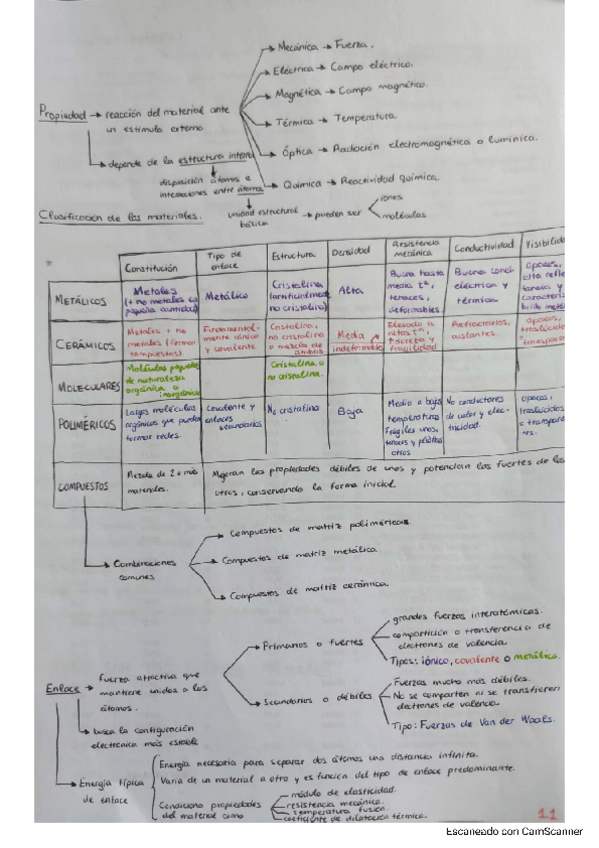 Mecánica → Fuerza.
Eléctrica → Campo eléctrico.
Magnética → Campo magnético.
Propiedad → reacción del material ante
un estímulo externo
Térmica → Temperatura.
Óptica → Radiación electromagnética o lumínica.
depende de la estructura interna
disposición átomos e
interacciones entre átomos
Química → Reactividad química.
Clasificación de los materiales.
unidad estructural
básica
→ pueden ser
iones
moléculas
Constitución
Tipo de
enlace
Estructura
Densidad
Resistencia
mecánica
Conductividad
Visibilida
METÁLICOS
Metales
(+ no metales en
pequeña cantidad)
Metálico
Cristalina
no cristalino)
Alta
Buena hasta
media tª,
tenaces,
deformables
Buena
eléctrica y
térmica
opacos,
CERÁMICOS
Metales + no
metales (forman
compuestos)
Fundamental-
mente iónico
y covalente
Cristalino,
no cristalino
o mezcla de
ambas
Media
Elevada a
altas tª,
fragilidad
Refractarios,
aislantes.
opacos,
MOLECULARES
Moléculas
de naturaleza
orgánica o
inorgánica
Cristalina o
no cristalina.
POLIMÉRICOS
Largas moléculas
orgánicas que pueden
formar redes.
Covalente y
enlaces
secundarios
No cristalino
Baja
Media a bajas
temperaturas
Frágiles unos,
tenaces y
otros
No conductores
de calor y elec-
tricidad.
opacos,
COMPUESTOS
Mezcla de 2 o más
materiales.
Mejoran las propiedades débiles de unos y potencian las fuertes de los
otros, conservando la forma inicial.
Combinaciones
comunes
Compuestos de matriz poliméricas
Compuestos de matriz metálica
Compuestos de matriz cerámica.
Enlace → fuerza atractiva que
mantiene unidos a los
átomos.
busca la configuración
electrónica más estable
Primarios o fuertes
grandes fuerzas interatómicas.
compartición o transferencia de
electrones de valencia.
Tipos: iónico, covalente o metálico.
Secundarios o débiles
Fuerzas mucho más débiles.
No se comparten ni se transfieren
electrones de valencia.
Tipo: Fuerzas de Van der Waals.
Energía típica
de enlace
Energía necesaria para separar dos átomos una distancia infinita.
Varía de un material a otro y es función del tipo de enlace predominante.
Condiciona propiedades
del material como
módulo de elasticidad.
resistencia mecánica.
temperatura fusión.
coeficiente de dilatación térmica.
1.1
Escaneado con CamScanner